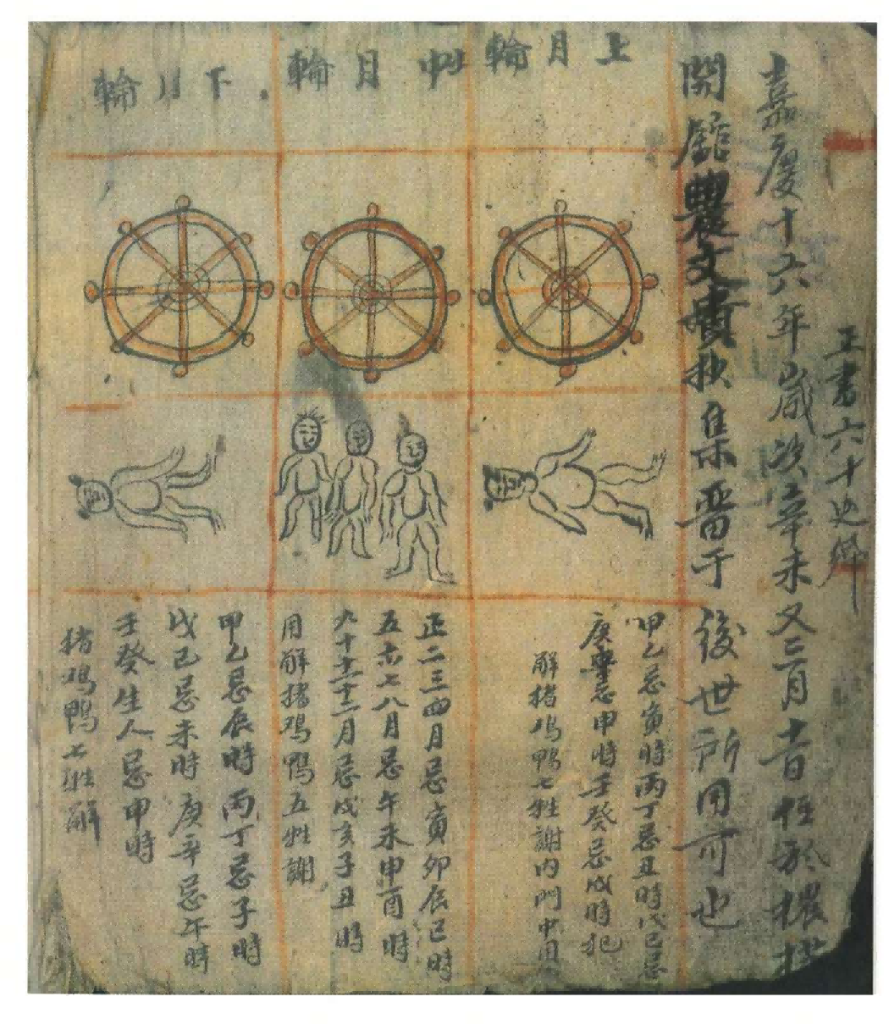 正書六十
嘉慶十六年歲次辛未又三月
開館農文 抄集留于後世所用可也
上月輪
中月輪
下月輪
甲乙忌寅時丙丁忌丑時戊己忌
庚辛忌申時壬癸忌戌時犯
解猪鸡鴨七牲謝内門中用
正二三四月忌寅卯辰巳時
五六七八月忌午未申酉時
九十十一十二月忌戌亥子丑時
用解猪鸡鴨五牲謝
甲乙忌辰時丙丁忌子時
戊己忌未時庚辛忌午時
壬癸生人忌申時
猪鸡鴨七牲解